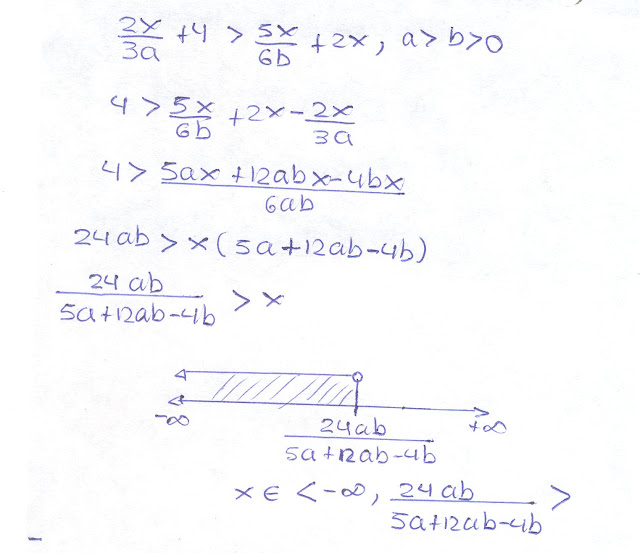 2x/3a + 4 > 5x/6b + 2x, a > b > 0
4 > 5x/6b + 2x - 2x/3a
4 > (5ax + 12abx - 4bx)/6ab
24ab > x(5a + 12ab - 4b)
24ab/(5a + 12ab - 4b) > x
-∞ 24ab/(5a + 12ab - 4b) +∞
x ∈ < -∞, 24ab/(5a + 12ab - 4b) >